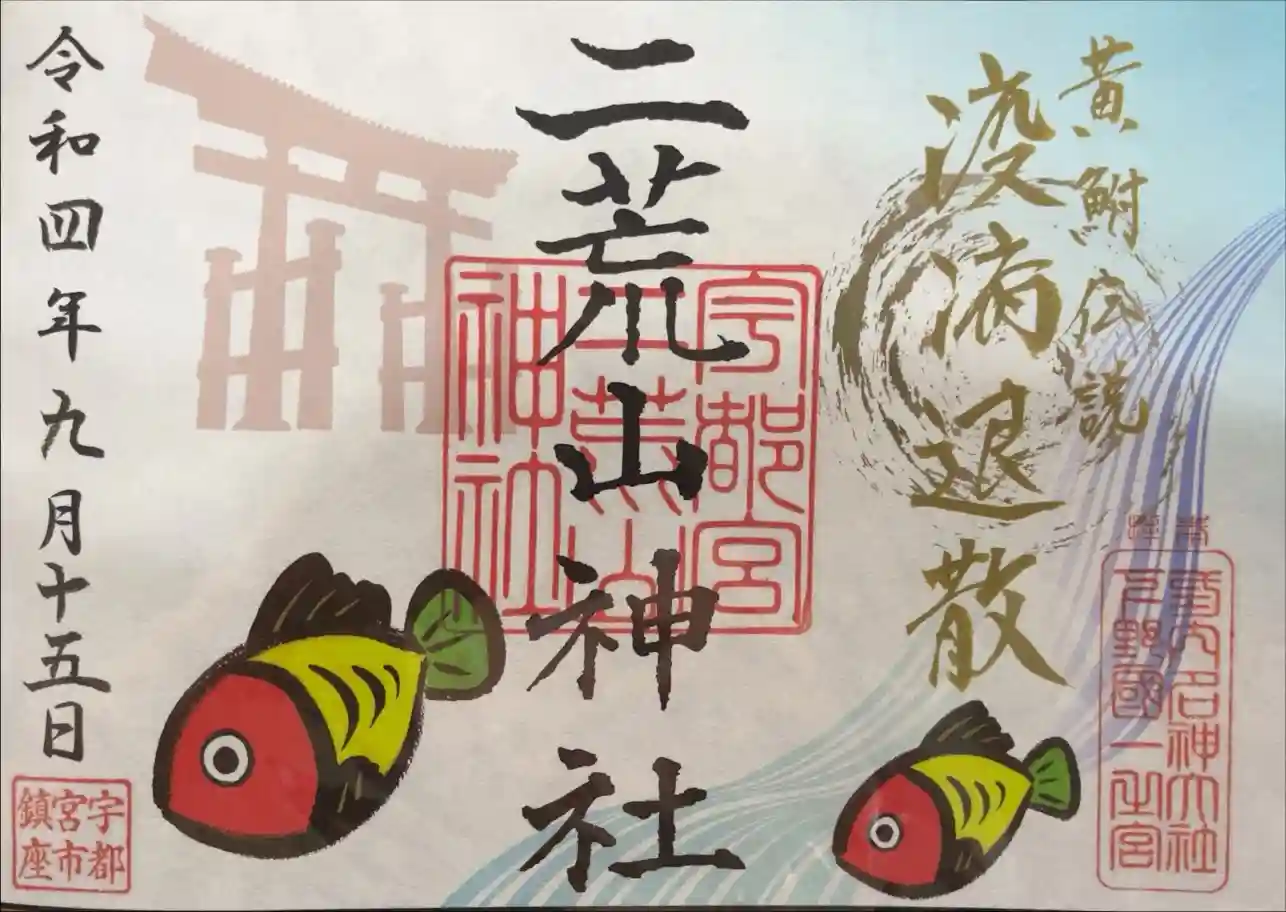 黄鮒伝説
疫病退散
奉拝
式内名神大社
下野國一之宮
二荒山神社
宇都宮
二荒山
神社
令和四年九月十五日
宇都
宮市
鎮座